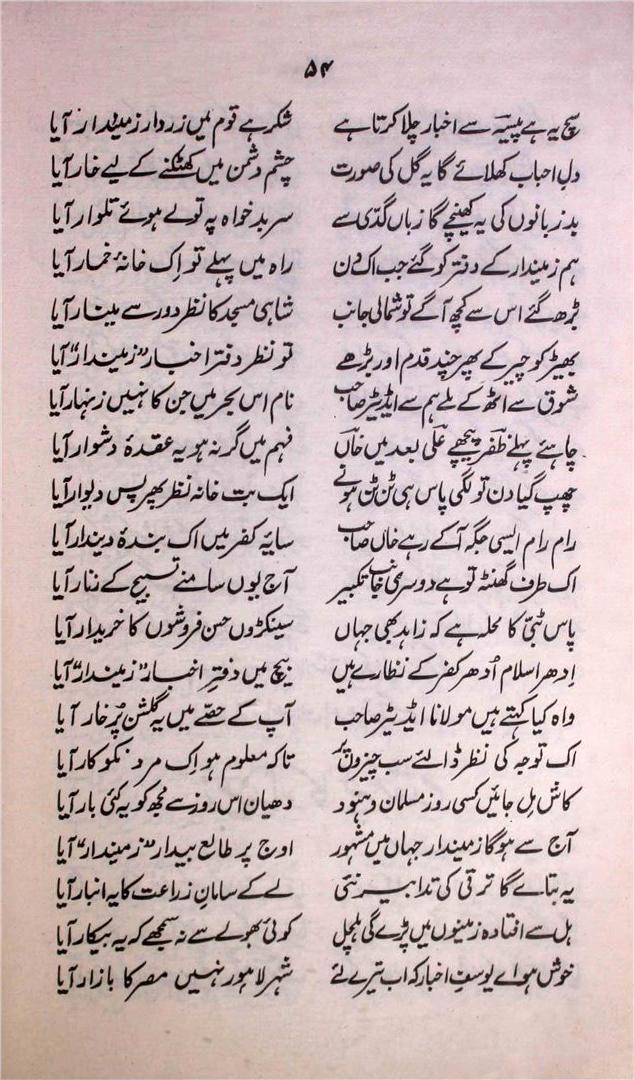 ۵۴
سچ یہ ہے پیسہ سے اخبار چلا کرتا ہے شکر ہے قوم میں زردار زمیندار آیا
دل احباب کھلائے گا یہ گل کی صورت چشم دشمن میں کھٹکنے کے لیے خار آیا
بدزبانوں کی یہ کھینچے گا زباں گدّی سے سر بدخواہ پہ تولے ہوئے تلوار آیا
ہم زمیندار کے دفتر کو گئے جب اک دن راہ میں پہلے تو اِک خانۂ خمار آیا
بڑھ گئے اس سے کچھ آگے تو شمالی جانب شاہی مسجد کا نظر دور سے مینار آیا
بھیڑ کو چیر کے پھر چند قدم اور بڑھے تو نظر دفتر اخبار ”زمیندار“ آیا
شوق سے اٹھ کے ملے ہم سے ایڈیٹر صاحب نام اس بحر میں جن کا نہیں زنہار آیا
چاہئے پہلے ظفر پیچھے علی بعد میں خاں فہم میں گر نہ ہو یہ عقدۂ دشوار آیا
چھپ گیا دن تو لگی پاس ہی ٹن ٹن ہونے ایک بت خانہ نظر پھر پس دیوار آیا
رام رام ایسی جگہ آ کے رہے خاں صاحب سایۂ کفر میں اک بندۂ دیندار آیا
اک طرف گھنٹہ تو ہے دوسری جانب تکبیر آج یوں سامنے تسبیح کے زنار آیا
پاس ٹبّی کا محلہ ہے کہ زاہد بھی جہاں سینکڑوں حسن فروشوں کا خریدار آیا
اِدھر اسلام اُدھر کفر کے نظارے ہیں بیچ میں دفترِ اخبار ”زمیندار“ آیا
واہ کیا کہتے ہیں مولانا ایڈیٹر صاحب آپ کے حصّے میں یہ گلشن پُرخار آیا
اک توجہ کی نظر ڈالئے سب چیزوں پر تاکہ معلوم ہو اِک مرد نکوکار آیا
کاش مل جائیں کسی روز مسلمان و ہنود دھیان اس روز سے مجھ کو یہ کئی بار آیا
آج سے ہوگا زمیندار جہاں میں مشہور اوج پر طالع بیدار ”زمیندار“ آیا
یہ بتائے گا ترقی کی تدابیر نئی لے کے سامانِ زراعت کا یہ انبار آیا
ہل سے افتادہ زمینوں میں پڑے گی ہلچل کوئی بھولے سے نہ سمجھے کہ یہ بیکار آیا
خوش ہو اے یوسفِ اخبار کہ اب تیرے لئے شہر لاہور نہیں مصر کا بازار آیا